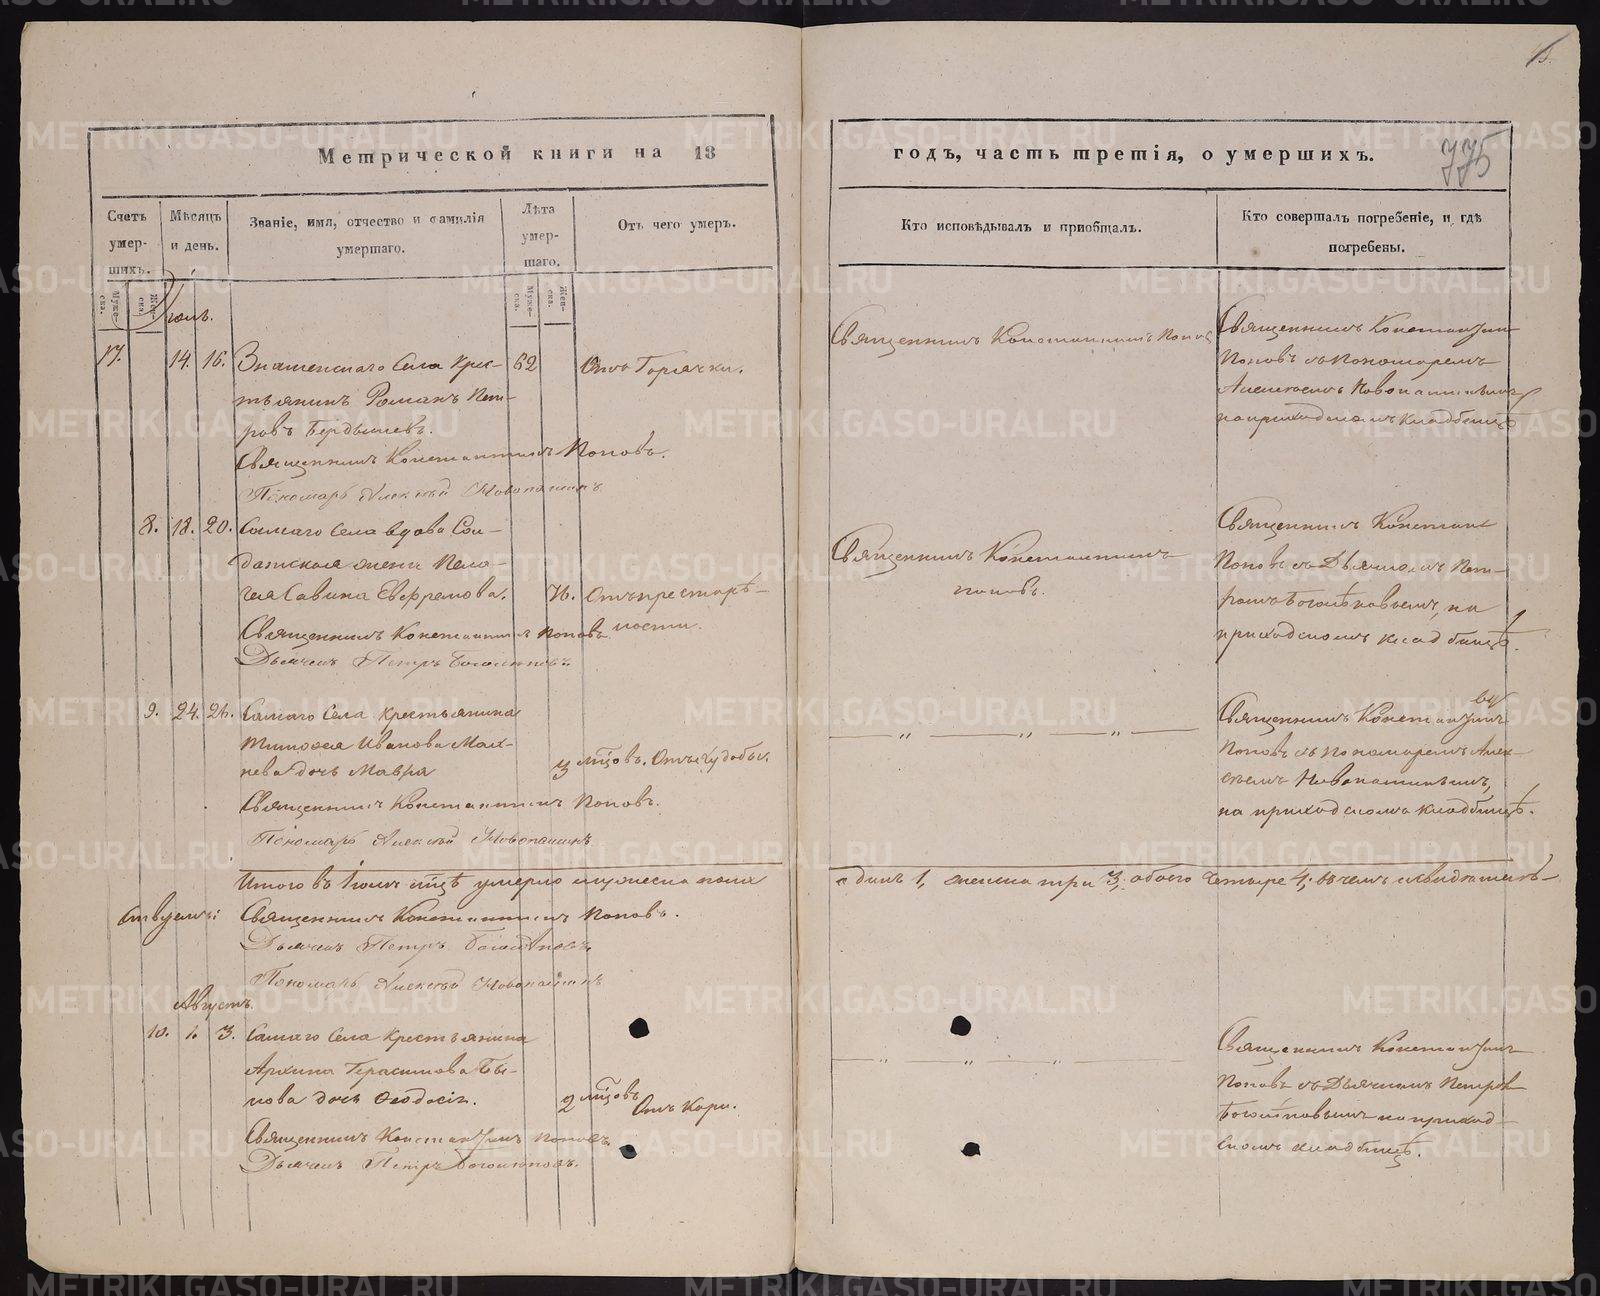 Метрической книги на 18
годъ, часть третія, о умершихъ.
775
Счетъ умер-шихъ.
Мѣсяцъ и день.
Званіе, имя, отчество и фамилія
умершаго.
Лѣта
умер-
шаго.
Отъ чего умеръ.
Кто исповѣдывалъ и пріобщалъ.
Кто совершалъ погребеніе, и гдѣ
погребены.
Муже-ска. Жен-ска.
Муже-ска. Жен-ска.
Іюль.
17. 14. 16. Знаменскаго Села Крес-
тьянинъ Романъ Пет-
ровъ Бердышевъ.
62
Отъ Горячки.
Священникъ Константинъ Поповъ.
Пономарь Алексѣй Новопашинъ
Священникъ Константинъ Поповъ
Священникъ Константинъ
Поповъ съ Пономаремъ
Алексѣемъ Новопашинымъ
на приходскомъ кладбищѣ
8. 18. 20. Самаго Села вдова Сол-
датская жена Пела-
гея Савина Евфремова.
76. Отъ престарѣ-
лости.
Священникъ Константинъ Поповъ
Дьячекъ Петръ Боголѣповъ
Священникъ Константинъ
Поповъ.
Священникъ Константинъ
Поповъ съ Дьячкомъ Пет-
ромъ Боголѣповымъ, на
приходскомъ кладбищѣ.
9. 24. 26. Самаго Села крестьянина
Тимофея Иванова
дочь Мавра
3 мѣсяцовъ. Отъ худобы.
Священникъ Константинъ Поповъ.
Пономарь Алексѣй Новопашинъ
Священникъ Константинъ
Поповъ съ Пономаремъ Алек-
сѣемъ Новопашинымъ,
на приходскомъ кладбищѣ.
Итого въ Іюлѣ мѣсяцѣ умерло мужеска пола
одинъ 1, женска три 3, обоего четыре 4; въ чемъ свидѣтель-
ствуемъ: Священникъ Константинъ Поповъ.
Дьячекъ Петръ Боголѣповъ
Пономарь Алексѣй Новопашинъ
Августъ.
10. 1. 3. Самаго Села Крестьянина
Архипа Герасимова Бы-
кова дочь Ѳеодосія.
2 мѣсяцовъ
Отъ Кори.
Священникъ Константинъ Поповъ
Дьячекъ Петръ Боголѣповъ.
Священникъ Константинъ
Поповъ съ Дьячкомъ Петромъ
Боголѣповымъ на приход-
скомъ кладбищѣ.
METRIKI.GASO-URAL.RU